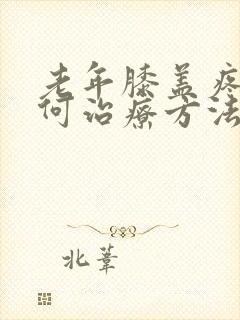 老年膝盖疼
何治疗方法
北苇